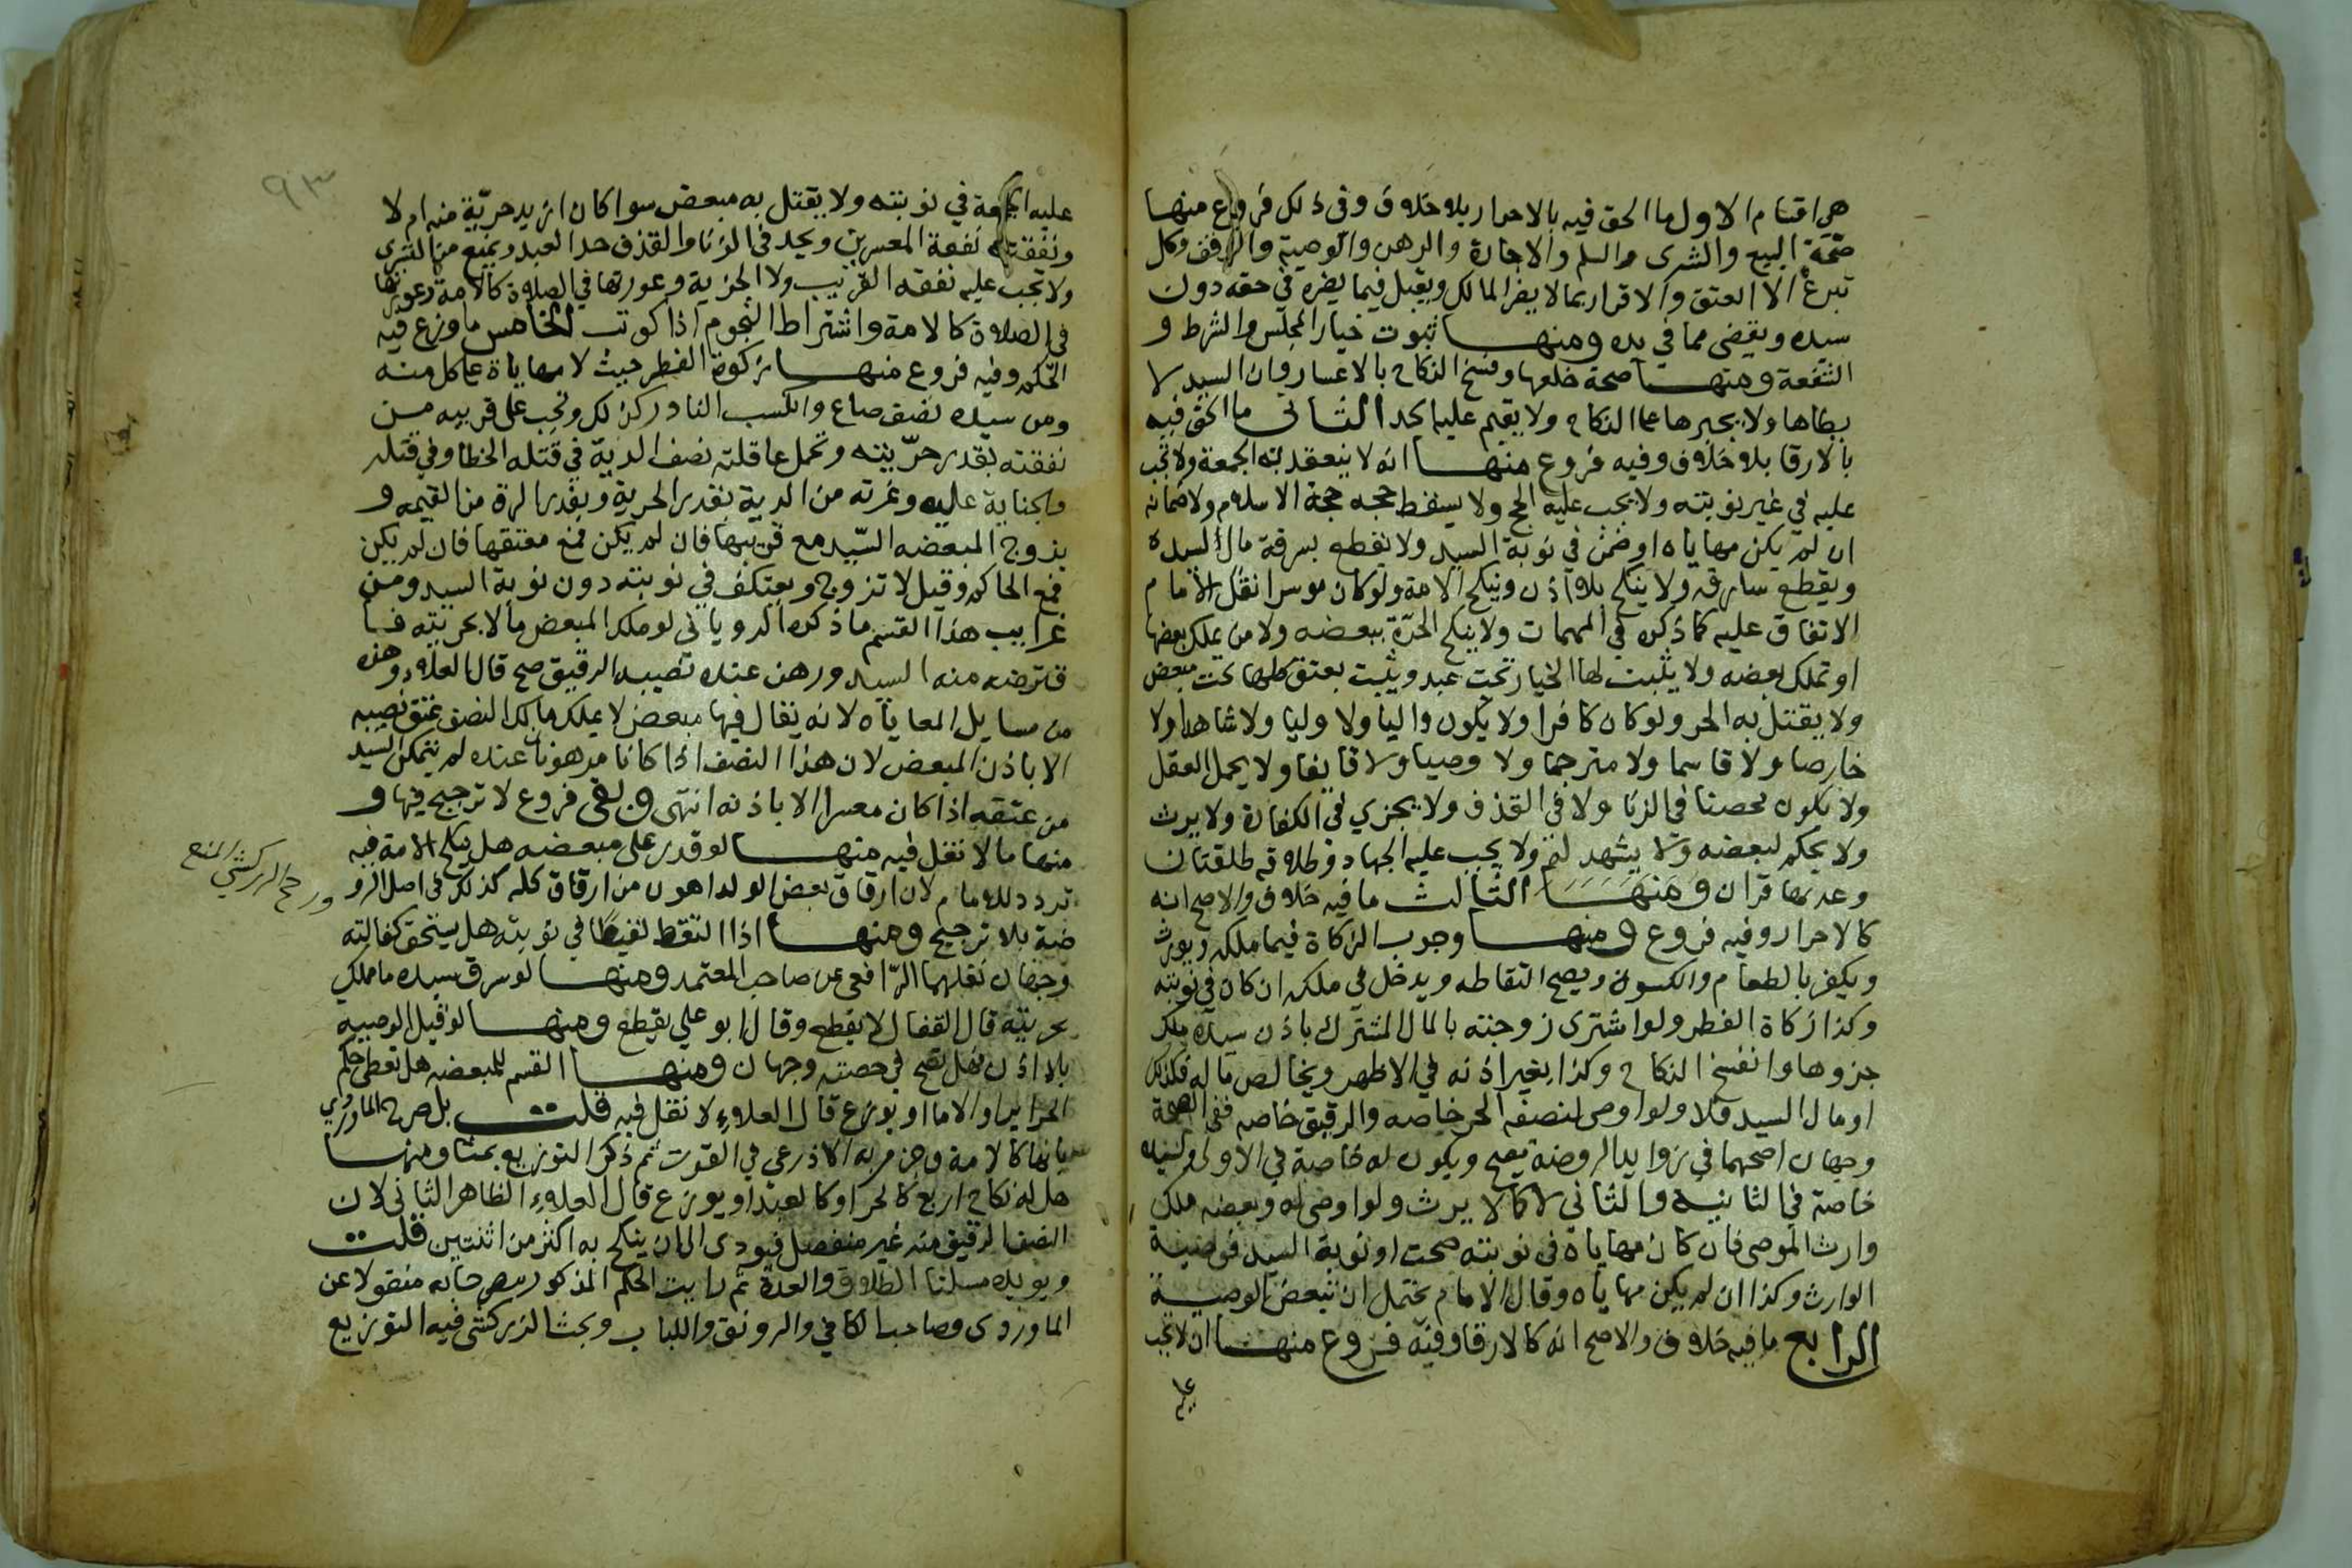 هي اقسام الاول ما الحق فيه بالاحرار بلا خلاف وفي ذلك فروع منها
صحة البيع والشرى والسلم والاجارة والرهن والوصية والوقف وكل
تبرع الا العتق والاقرار بما لا يضر المالك ويقبل فيما يضره في حقه دون
سيده ويقضى مما في يده ومنها ثبوت خيار المجلس والشرط و
الشفعة ومنها صحة خلعها وفسخ النكاح بالاعسار وان السيد لا
يطاها ولا يجبرها على النكاح ولا يقيم عليها الحد الثاني ما الحق فيه
بالارقا بلا خلاف وفيه فروع منها انه لا ينعقد به الجمعة ولا تجب
عليه في غير نوبته ولا يجب عليه الحج ولا يسقط حجه حجة الاسلام ولا ضمانه
ان لم يكن مهاياه او ضمن في نوبة السيد ولا يقطع بسرقة مال السيده
ويقطع سارقه ولا ينكح بلا اذن وينكح الامة ولو كان موسرا نقل الامام
الاتفاق عليه كما ذكره في المهمات ولا ينكح الحرة ببعضه ولا من يملك بعضها
او تملك بعضه ولا يثبت لها الخيار تحت عبد ويثبت بعتق كلها تحت مبعض
ولا يقتل به الحر ولو كان كافرا ولا يكون واليا ولا وليا ولا شاهدا ولا
خارصا ولا قاسما ولا مترجما ولا وصيا ولا قايفا ولا يحمل العقل
ولا يكون محصنا في الزنا ولا في القذف ولا يجزي في الكفارة ولا يرث
ولا يحكم لبعضه ولا يشهد له ولا يجب عليه الجهاد وطلاقه طلقتان
وعدتها قران ومنها الثالث ما فيه خلاف والاصح انه
كالاحرار وفيه فروع ومنها وجوب الزكاة فيما ملكه ويورث
ويكفر بالطعام والكسوة ويصح التقاطه ويدخل في ملكه ان كان في نوبته
وكذا زكاة الفطر ولو اشترى زوجته بالمال المشترك باذن سيده ملك
جزوها وانفسخ النكاح وكذا بغير اذنه في الاظهر وبخالص ماله فكذلك
او مال السيد فلا ولو اوصى لنصفه الحر خاصه والرقيق خاصه ففي الصحة
وجهان اصحهما في زوايد الروضة يصح ويكون له خاصة في الاولى ولسيده
خاصة في الثانية والثاني لا كما لا يرث ولو اوصى له وبعضه ملك
وارث الموصى فان كان مهاياة في نوبته صحت او نوبة السيد فوصية
الوارث وكذا ان لم يكن مهاياه وقال الامام يحتمل ان تتبعض الوصية
الرابع ما فيه خلاف والاصح انه كالارقا وفيه فروع منها ان لا تجب
عليه
٩٣
عليه الجمعة في نوبته ولا يقتل به مبعض سوا كان ازيد حرية منه ام لا
ونفقته نفقة المعسرين ويحد في الزنا والقذف حد العبد ويمنع من التسرى
ولا تجب عليه نفقه القريب ولا الجزية وعورتها في الصلاة كالامة وعورتها
في الصلاة كالامة واشتراط النجوم اذا كوتب الخامس ما وزع فيه
الحكم وفيه فروع منها زكوة الفطر حيث لا مهاياة على كل منه
ومن سيده نصف صاع والكسب النادر كذلك وتجب على قريبه من
نفقته بقدر حريته وتحمل عاقلته نصف الدية في قتله الخطا وفي قتله
والجناية عليه وغرته من الدية بقدر الحرية وبقدر الرق من القيمه و
يزوج المبعضه السيد مع قريبها فان لم يكن فمع معتقها فان لم يكن
فمع الحاكم وقيل لا تزوج ويعتكف في نوبته دون نوبة السيد ومن
غرايب هذا القسم ما ذكره الروياني لو ملك المبعض مالا بحريته فا
قترضه منه السيد ورهن عنده نصيبه الرقيق صح قال العلاء وهذه
من مسايل المعاياه لانه يقال فيها مبعض لا يملك مالك النصف عتق نصيبه
الا باذن المبعض لان هذا النصف اذا كانا مرهونا عنده لم يتمكن السيد
من عتقه اذا كان معسرا الا باذنه انتهى وبقى فروع لا ترجيح فيها و
منها ما لا نقل فيه منها لو قدر على مبعضه هل ينكح الامة فيه
ورجح الزركشي المنع
تردد للامام لان ارقاق بعض الولد اهون من ارقاق كله كذلك في اصل الرو
ضة بلا ترجيح ومنها اذا التقط لقيطا في نوبته هل يستحق كفالته
وجهان نقلهما الرافعى عن صاحب المعتمد ومنها لو سرق سيده ما ملك
بحريته قال القفال لا يقطع وقال ابو علي يقطع ومنها لو قبل الوصيه
بلا اذن فهل تصح في حصته وجهان ومنها القسم للمبعضه هل تعطى حكم
الحراير او الاما او يوزع قال العلاء لا نقل فيه قلت بل صرح الماوردي
بانها كالامة وجزم به الاذرعي في القوت ثم ذكر التوزيع بحثا ومنها
هل له نكاح اربع كالحر او كالعبد او يوزع قال العلاء الظاهر الثاني لان
النصف الرقيق منه غير منفصل فيودى الى ان ينكح به اكثر من اثنتين قلت
ويويده مسلتا الطلاق والعدة ثم رايت الحكم المذكور مصرحا به منقولا عن
الماوردى وصاحب الكافي والرونق واللباب وبحث الزركشى فيه التوزيع